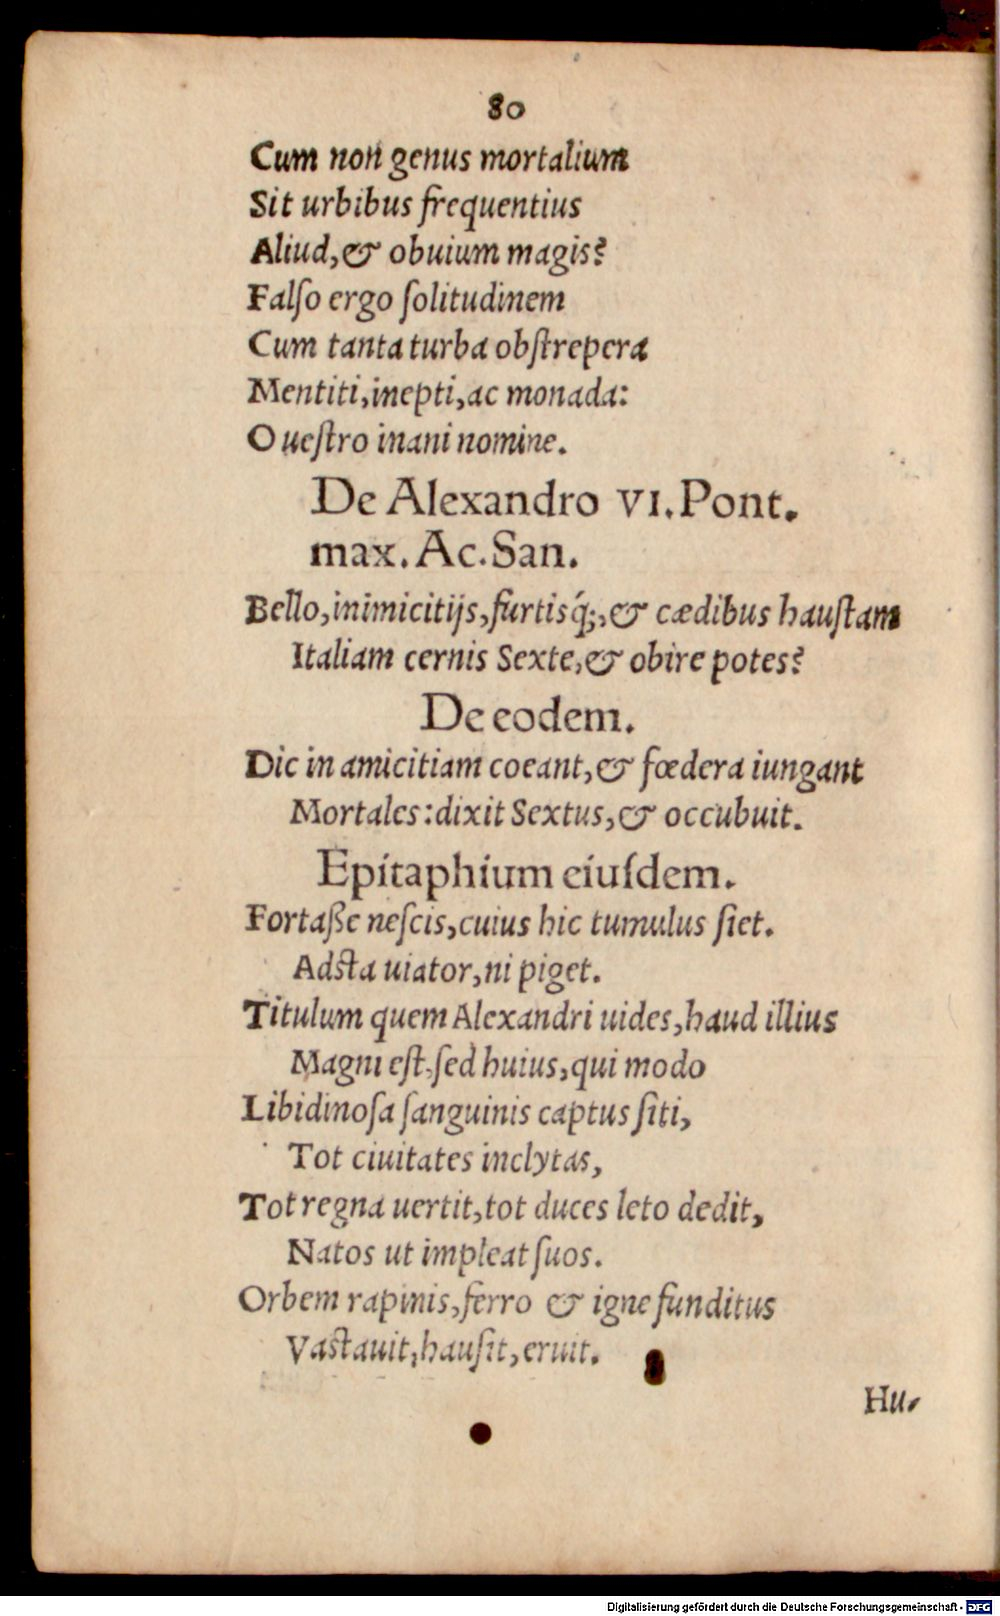 80
Cum non genus mortalium
Sit urbibus frequentius
Aliud,& obuium magis?
Falſo ergo ſolitudinem
Cum tanta turba obſtrepera
Mentiti,inepti,ac monada:
O ueſtro inani nomine.
De Alexandro VI.Pont.
max.Ac.San.
Bello,inimicitijs,furtisq́;,& cædibus hauſtam
Italiam cernis Sexte,& obire potes?
De eodem.
Dic in amicitiam coeant,& fœdera iungant
Mortales:dixit Sextus,& occubuit.
Epitaphium eiuſdem.
Fortaße neſcis,cuius hic tumulus ſiet.
Adſta uiator,ni piget.
Titulum quem Alexandri uides,haud illius
Magni eſt,ſed huius,qui modo
Libidinoſa ſanguinis captus ſiti,
Tot ciuitates inclytas,
Tot regna uertit,tot duces leto dedit,
Natos ut impleat ſuos.
Orbem rapinis,ferro & igne funditus
Vaſtauit,hauſit,eruit.
Hu-
Digitalisierung gefördert durch die Deutsche Forschungsgemeinschaft - DFG